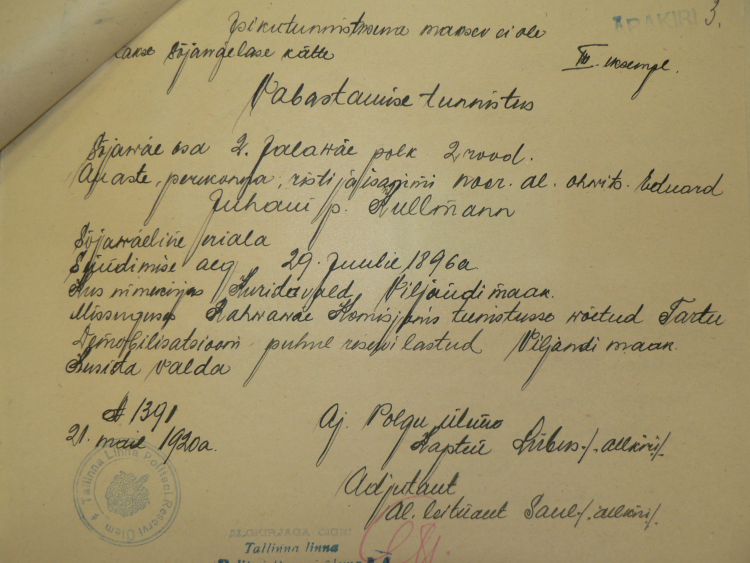 Isikutunnistusena maksev ei ole
ÄRAKIRI 3.
takse Sõjawäelase kätte
III. eksempl.
Vabastamise tunnistus
Sõjawäe osa 2. Jalawäe polk 2 rood.
Auaste, perekonna, risti ja isanimi noor. al. ohwits. Eduard
Juhani p. Kullmann
Sõjawäeline eriala
Sündimise aeg 29. Juulie 1896a.
Kus nimekirjas Kurista vald Viljandi maak.
Missuguses Rahwawäe Komisjonis teenistusse wõetud Tartu
Demobilisatsiooni puhul reservi lastud Viljandi maak.
Kurista valda
№ 1391
21. mail 1920a.
Aj. Polgu ülem
Kapten /-allkiri/-
Adjutant
Al. leitnant Saul /-allkiri/-
Tallinna Linna Politsei Reservi Ülem
ALGKIRJAGA ÕIGE:
Tallinna linna